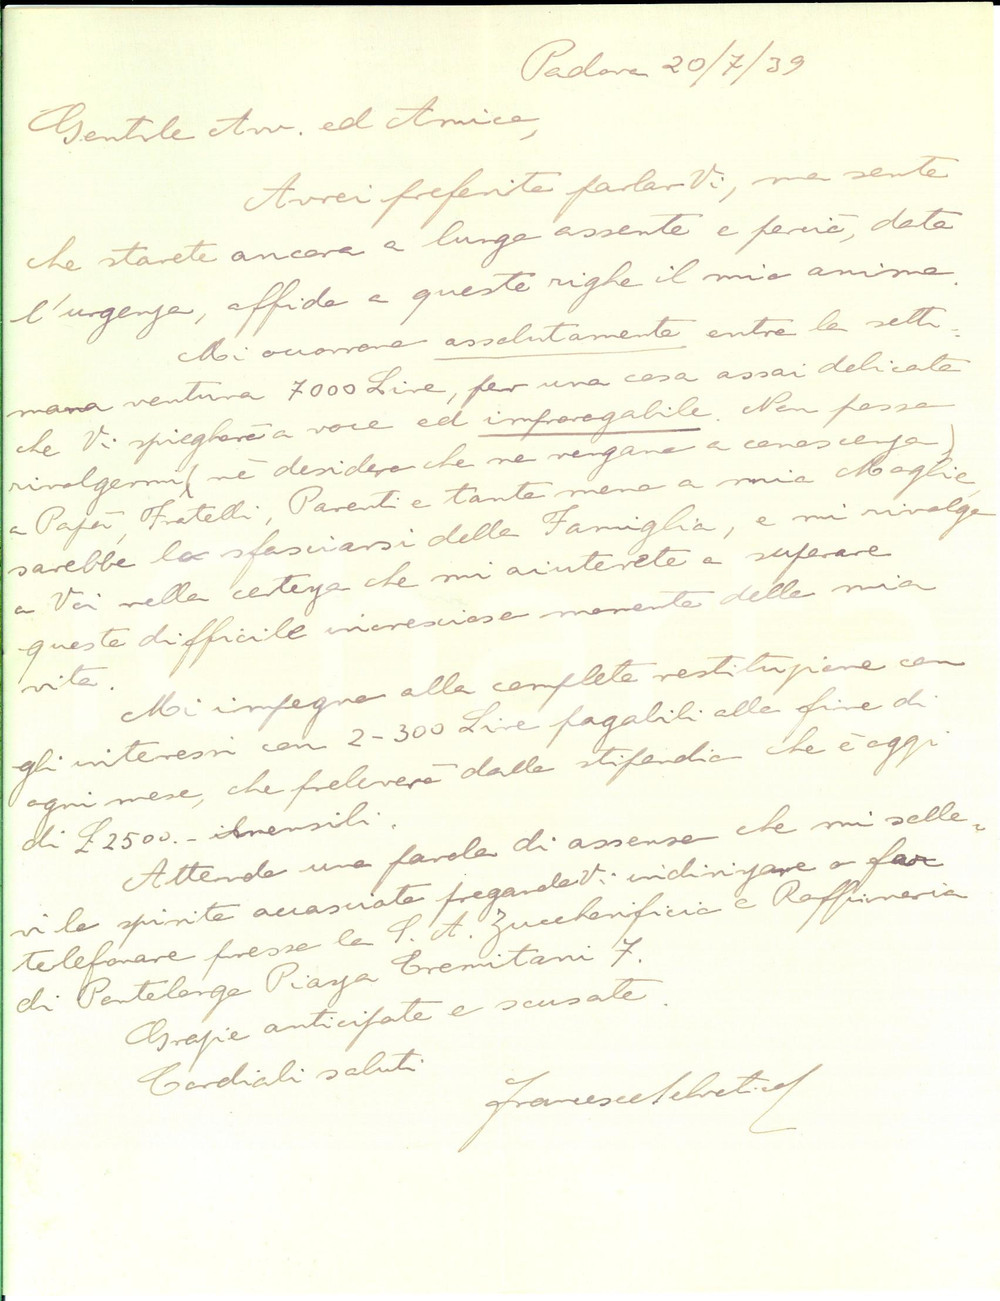 Padova 20/7/39
Gentile Avv. ed Amico,
Avrei preferito parlarVi, ma sento
che starete ancora a lungo assente e perciò, data
l'urgenza, affido a queste righe il mio animo.
Mi occorrono assolutamente entro la setti=
mana ventura 7000 Lire, per una cosa assai delicata
che Vi spiegherò a voce ed improrogabile. Non posso
rivolgermi (nè desidero che ne vengano a conoscenza)
a Papà, Fratelli, Parenti e tanto meno a mia Moglie,
sarebbe lo sfasciarsi della Famiglia, e mi rivolgo
a Voi nella certezza che mi aiuterete a superare
questo difficile increscioso momento della mia
vita.
Mi impegno alla completa restituzione con
gli interessi con 2-300 Lire pagabili alla fine di
ogni mese, che preleverò dallo stipendio che è oggi
di £ 2500.- mensili.
Attendo una parola di assenso che mi solle=
vi lo spirito accasciato pregandoVi indirizzare o far
telefonare presso la S. A. Zuccherificio e Raffineria
di Pontelongo Piazza Eremitani 7.
Grazie anticipate e scusate.
Cordiali saluti
Francesco